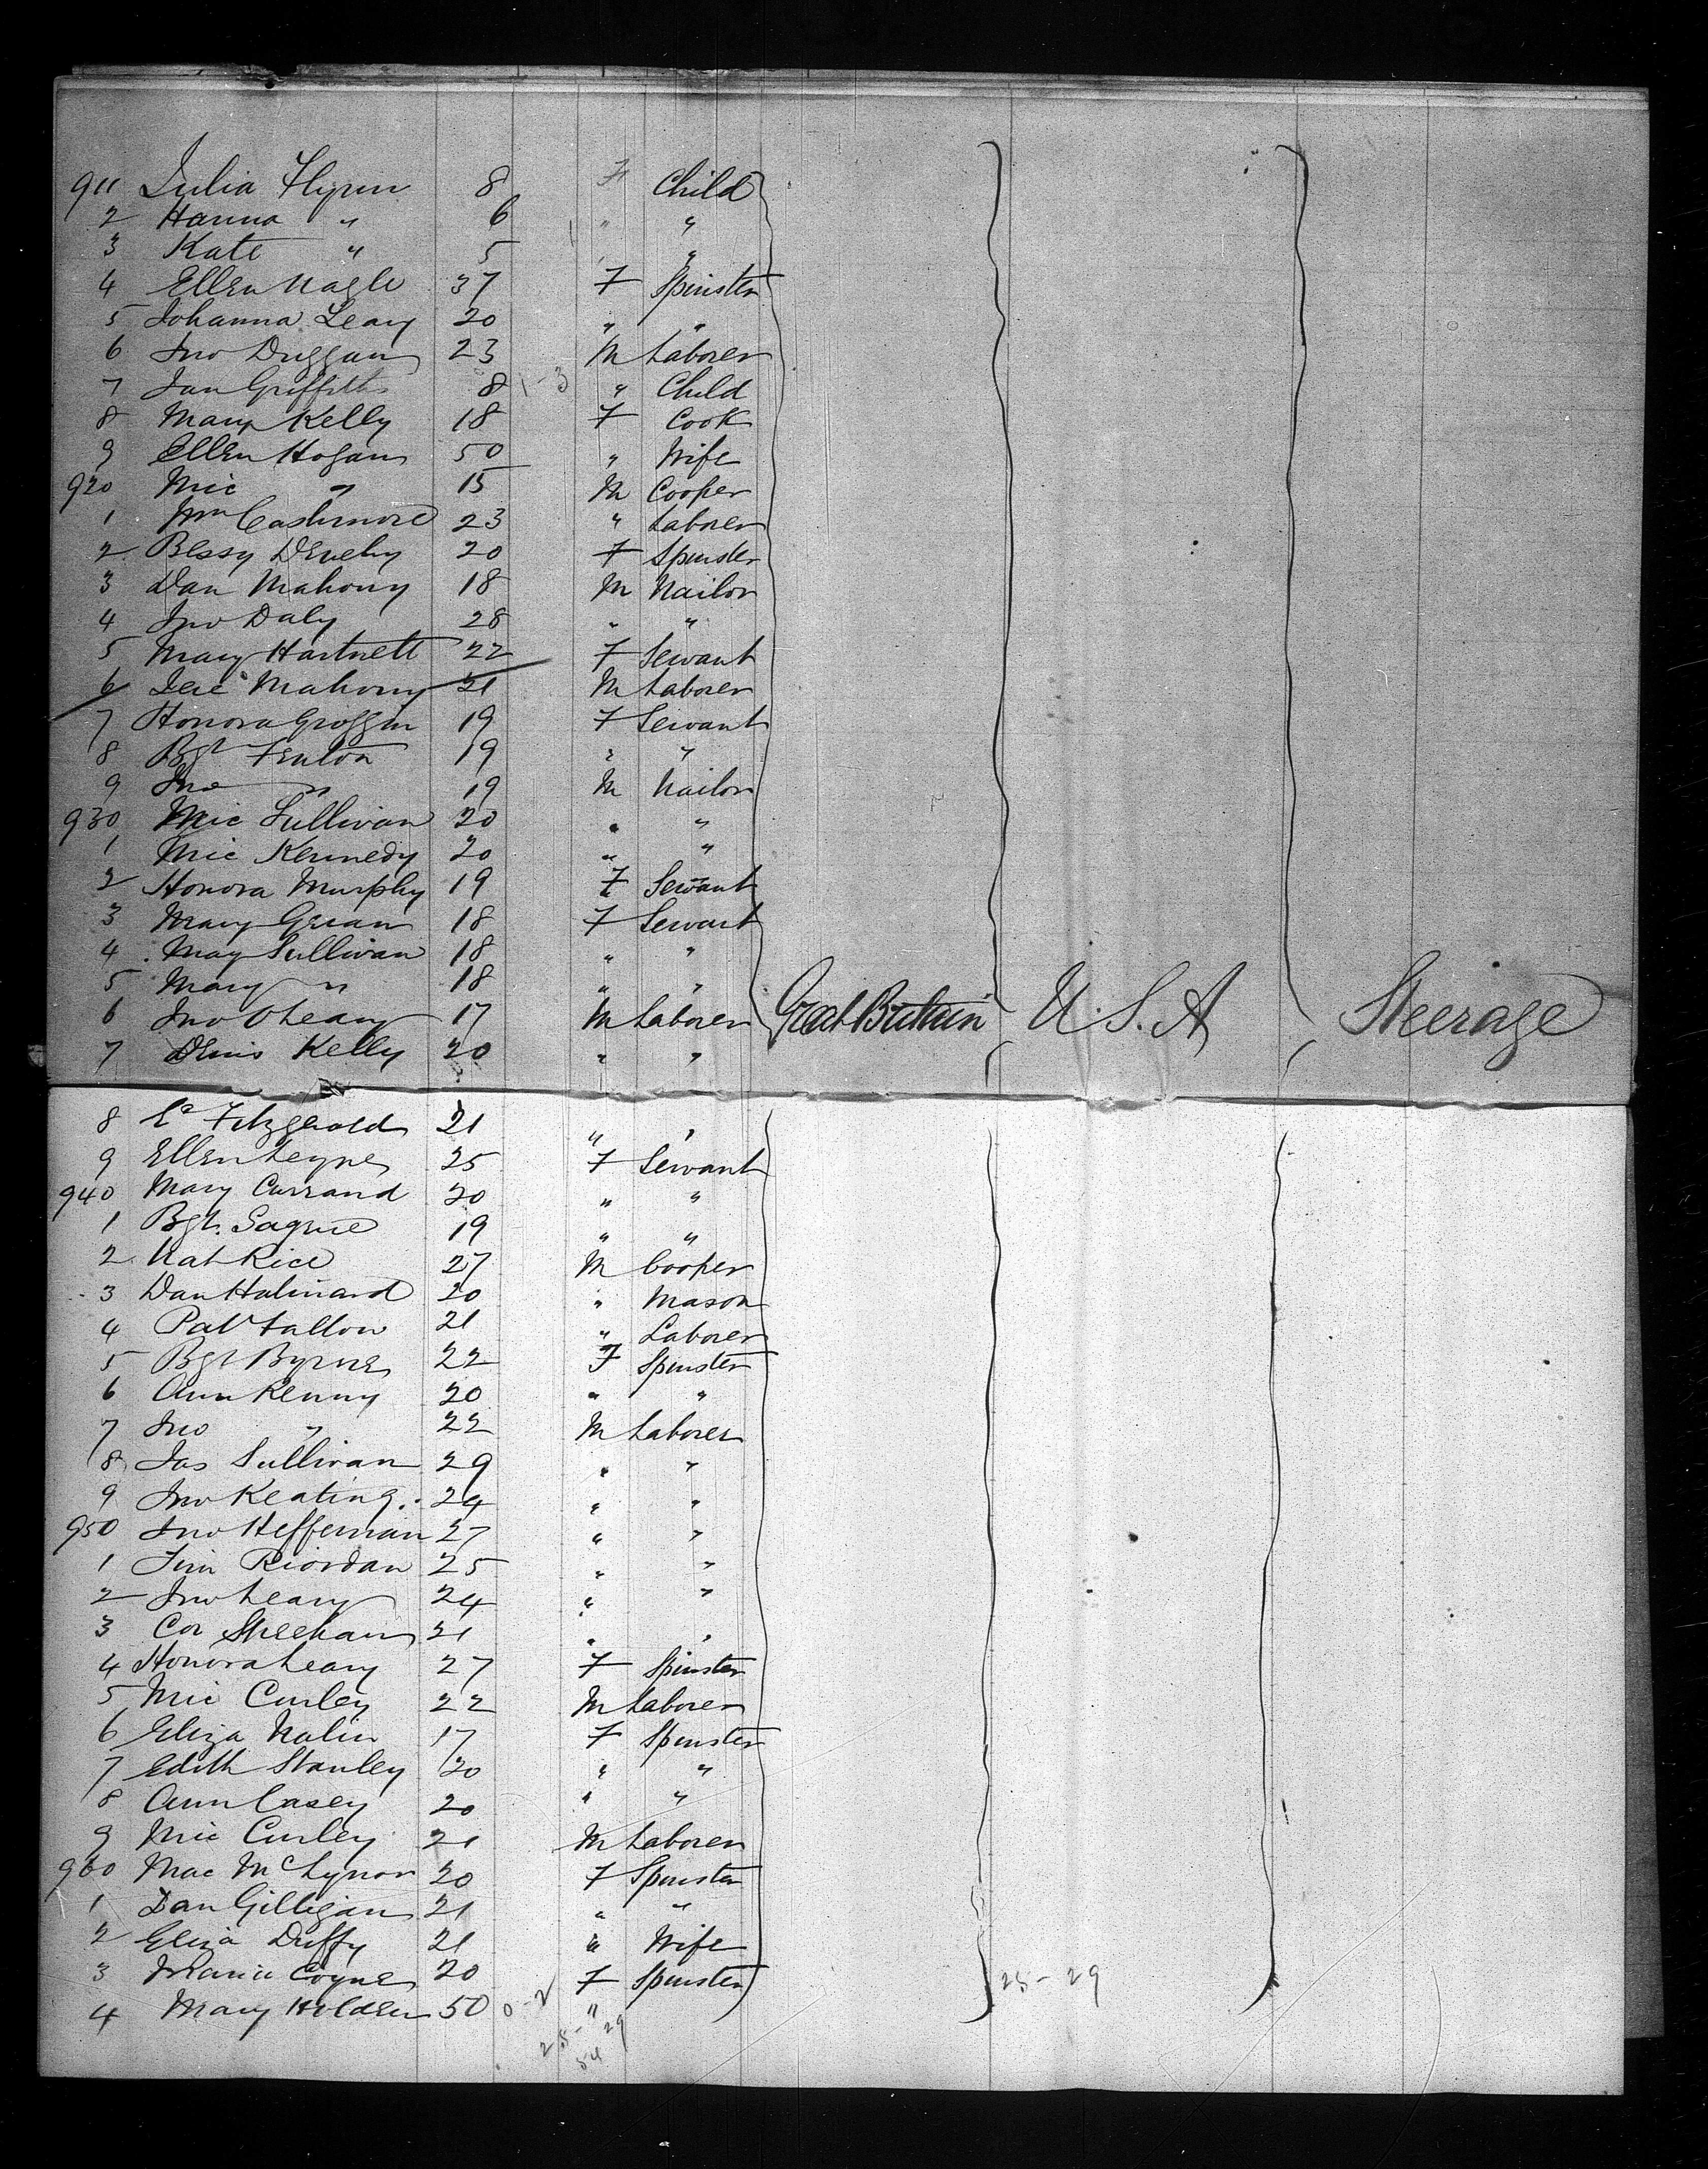 911 Julia Flynn 8 F Child
2 Hanna " 6 " "
3 Kate " 5 " "
4 Ellen Nagle 37 F Spinster
5 Johanna Leary 20 " "
6 Jno Duggan 23 M Laborer
7 Jan Griffith 8 " Child
8 Mary Kelly 18 F Cook
9 Ellen Hogan 50 " Wife
920 Mic " 15 M Cooper
1 Wm Cashmore 23 " Laborer
2 Bessy 20 F Spinster
3 Dan Mahony 18 M Nailor
4 Jno Daly 28 " "
5 Mary Hartnett 22 F Servant
6 Jere Mahony 21 M Laborer
7 Honora Groggin 19 F Servant
8 Bgt Fenton 19 " "
9 Jno " 19 M Nailor
930 Mic Sullivan 20 " "
1 Mic Kennedy 20 " "
2 Honora Murphy 19 F Servant
3 Mary 18 F Servant
4 May Sullivan 18 " "
5 Mary " 18 " "
6 Jno OLeary 17 M Laborer Great Britain U.S.A Steerage
7 Denis Kelly 20 " "
8 Fitzgerald 21 " "
9 Ellen Leyne 25 F Servant
940 Mary Currand 20 " "
1 Bgt. Sagrue 19 " "
2 Nat Rice 27 M Cooper
3 Dan Halinard 20 " Mason
4 Pat Fallon 21 " Laborer
5 Bgt Byrne 22 F Spinster
6 Ann Kenny 20 " "
7 Jno " 22 M Laborer
8 Jas Sullivan 29 " "
9 Jno Keating 24 " "
950 Jno Heffernan 27 " "
1 Tim Riordan 25 " "
2 Jno Leary 24 " "
3 Cor Sheehan 21 " "
4 Honora Leary 27 F Spinster
5 Mic Curley 22 M Laborer
6 Eliza Nalin 17 F Spinster
7 Edith Stanley 20 " "
8 Ann Casey 20 " "
9 Mic Curley 21 M Laborer
960 Mac McLynor 20 F Spinster
1 Dan Gilligan 21 " "
2 Eliza Duffy 21 " Wife
3 Maria Coyne 20 F Spinster 25-29
4 Mary Holden 50 0-2 "
25-29
54